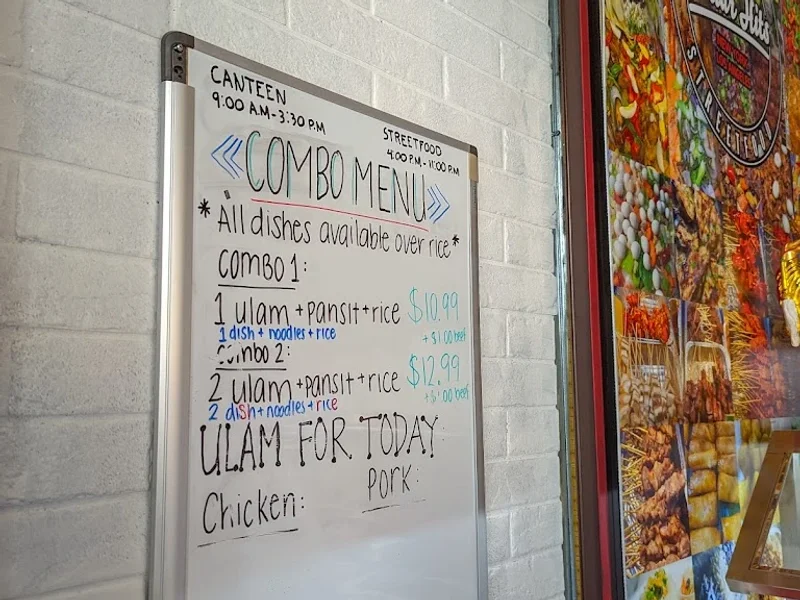 CANTEEN
9:00 A.M-3:30 P.M
STREETFOOD
4:00 P.M-11:00 P.M
« COMBO MENU »
*All dishes available over rice*
Combo 1:
1 ulam + pansit + rice $10.99
1 dish + noodles + rice + $1.00 beef
Combo 2:
2 ulam + pansit + rice $12.99
+ $1.00 beef
2 dish + noodles + rice
ULAM FOR TODAY:
Chicken:
Pork:
STREETFOOD